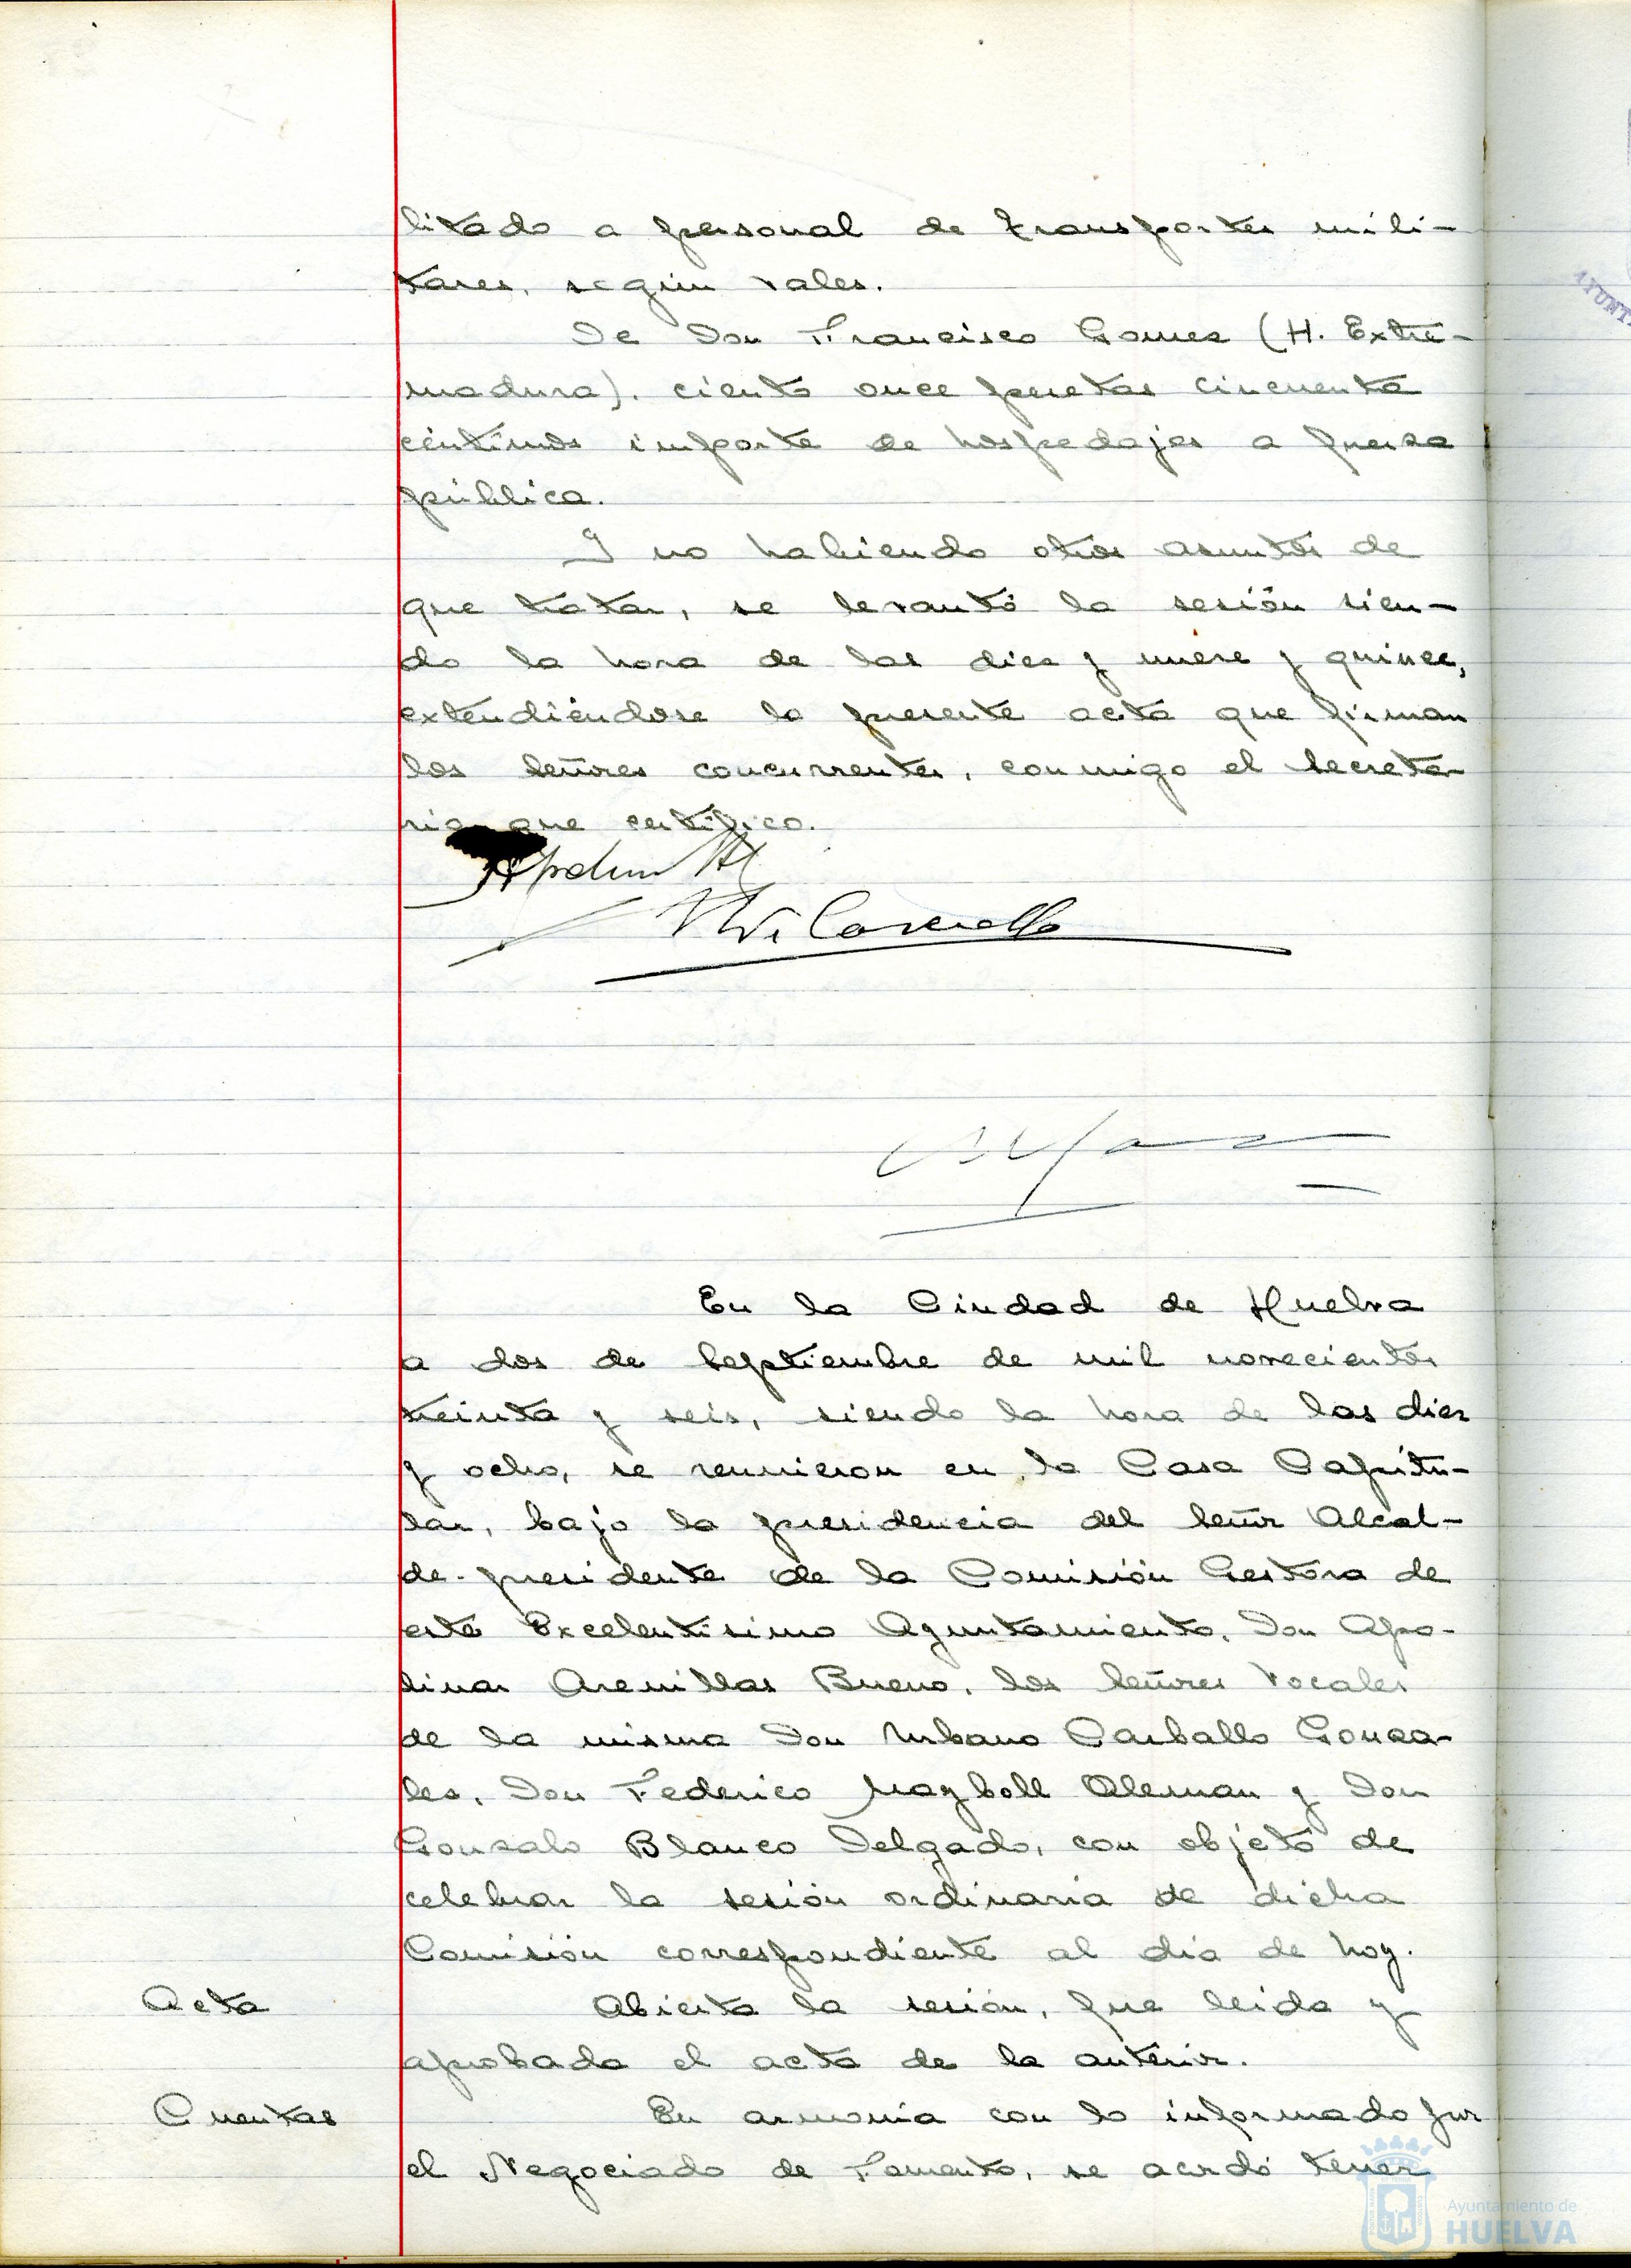 litado a personal de transportes mili-
tares, según vales.
De Don Francisco Gomez (H. Extre-
madura), ciento once pesetas cincuenta
céntimos importe de hospedajes a fuerza
pública.
Y no habiendo otros asuntos de
que tratar, se levantó la sesión sien-
do la hora de las diez y nueve y quince,
extendiéndose la presente acta que firman
los señores concurrentes, conmigo el secreta-
rio que certifico.
En la Ciudad de Huelva
a dos de Septiembre de mil novecientos
treinta y seis, siendo la hora de las diez
y ocho, se reunieron en la Casa Capitu-
lar, bajo la presidencia del Señor Alcal-
de-presidente de la Comisión Gestora de
este Excelentísimo Ayuntamiento, Don Apo-
linar Arenillas Bueno, los Señores Vocales
de la misma Don Urbano Carballo Gonza-
les, Don Federico Mayboll Aleman y Don
Gonzalo Blanco Delgado, con objeto de
celebrar la sesión ordinaria de dicha
Comisión correspondiente al dia de hoy.
Acta
Abierta la sesión, fue leida y
aprobada el acta de la anterior.
Cuentas
En armonia con lo informado por
el Negociado de Fomento, se acordó tener
Ayuntamiento de
HUELVA